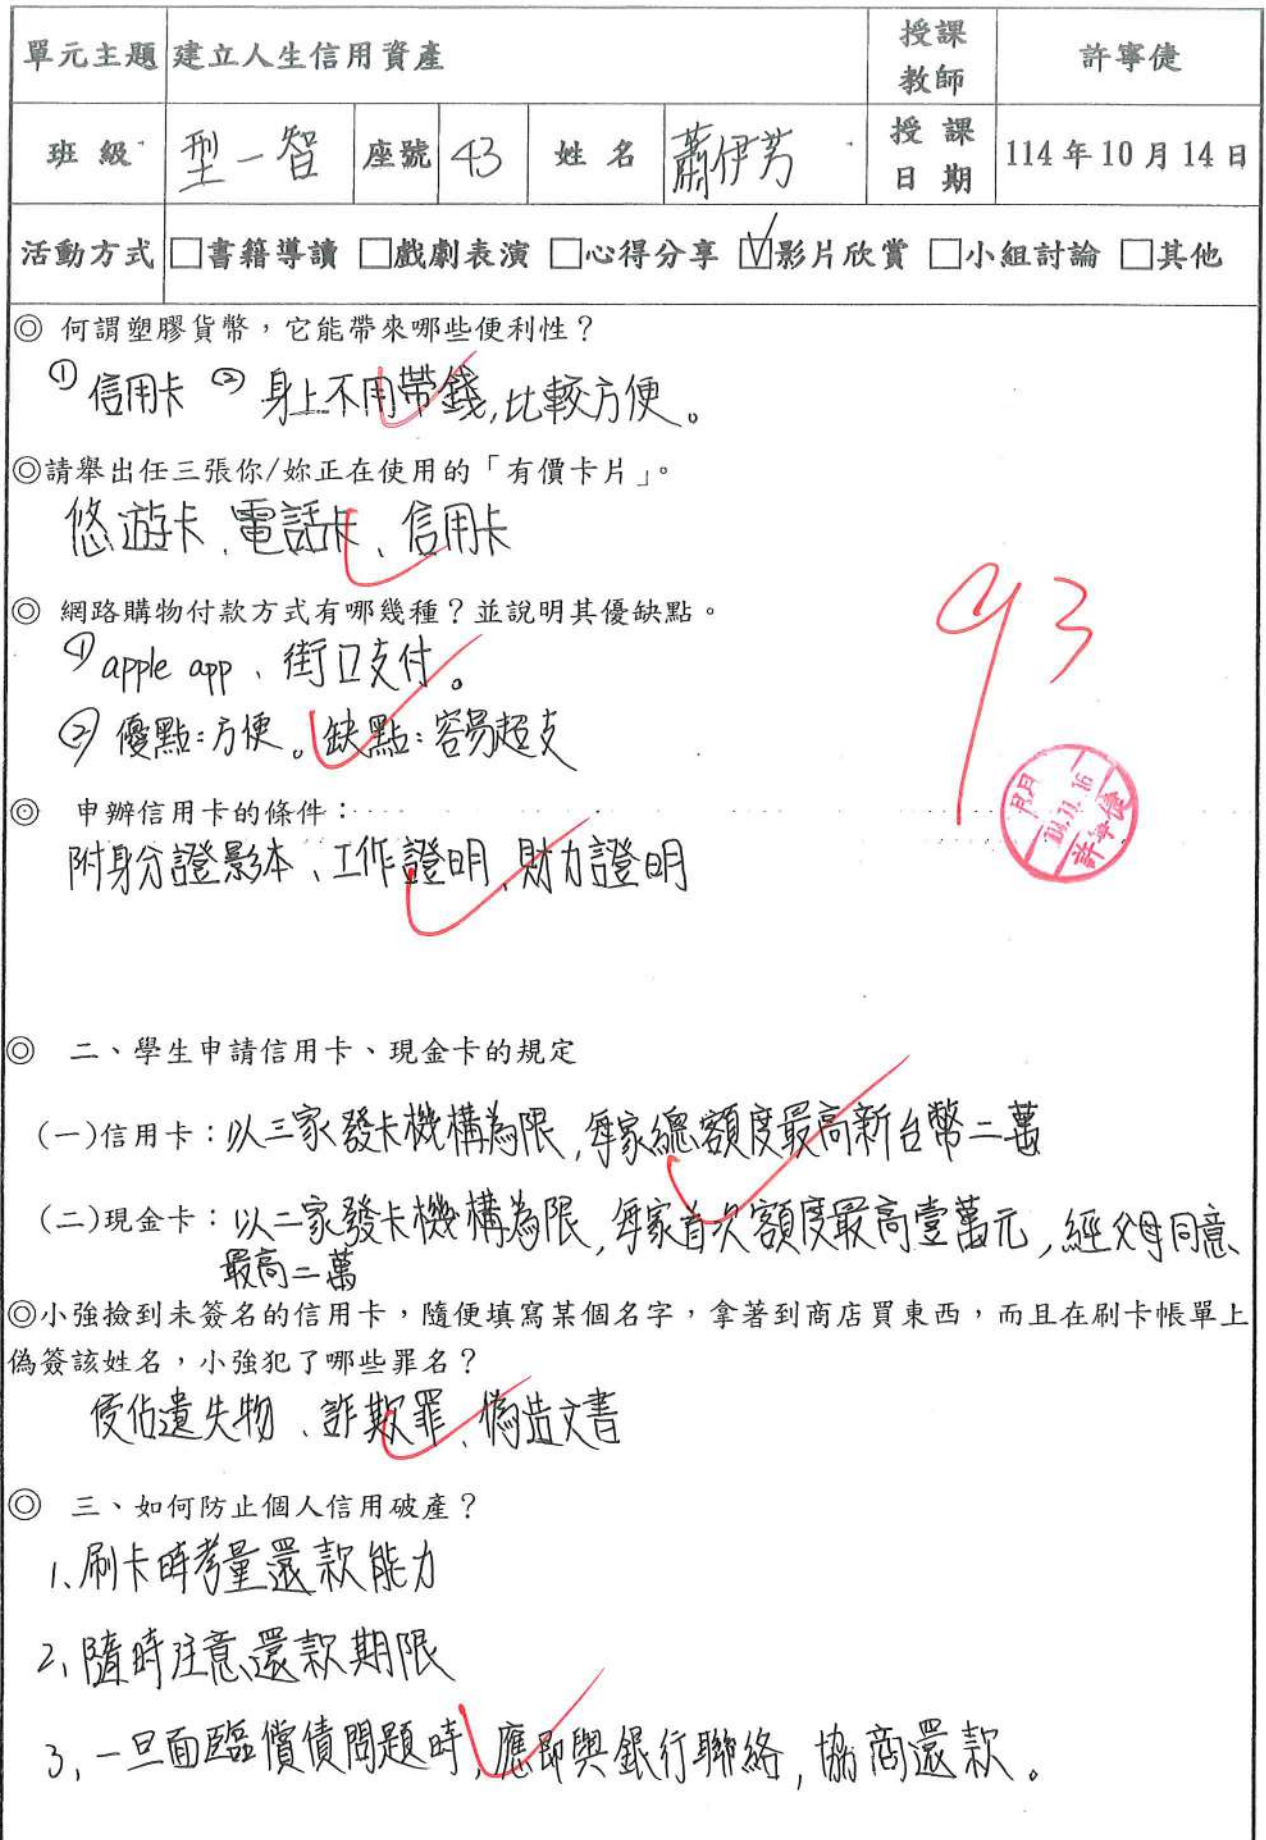 單元主題 建立人生信用資產 授課教師 許寧倢
班級 型一智 座號 43 姓名 蕭伊芳 授課日期 114年10月14日
活動方式 □書籍導讀 □戲劇表演 □心得分享 ☑影片欣賞 □小組討論 □其他
◎ 何謂塑膠貨幣，它能帶來哪些便利性？
①信用卡 ②身上不用帶錢,比較方便。
◎請舉出任三張你/妳正在使用的「有價卡片」。
悠遊卡、電話卡、信用卡
◎ 網路購物付款方式有哪幾種？並說明其優缺點。
①apple app、街口支付。
②優點:方便。缺點:容易超支
93
◎ 申辦信用卡的條件：
附身分證影本、工作證明、財力證明
許寧倢
◎ 二、學生申請信用卡、現金卡的規定
(一)信用卡：以三家發卡機構為限,每家總額度最高新台幣二萬
(二)現金卡：以二家發卡機構為限,每家首次額度最高壹萬元,經父母同意
最高二萬
◎小強撿到未簽名的信用卡，隨便填寫某個名字，拿著到商店買東西，而且在刷卡帳單上
偽簽該姓名，小強犯了哪些罪名？
侵佔遺失物、詐欺罪、偽造文書
◎ 三、如何防止個人信用破產？
1、刷卡時考量還款能力
2、隨時注意還款期限
3、一旦面臨償債問題時,應即與銀行聯絡,協商還款。